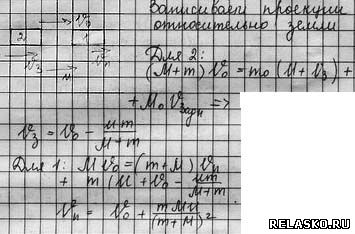 Записываем проекции
относительно земли
v₀
2 1
v₃ vₙ
u
Для 2:
(M+m) v₀ = m₀ (u + v₃) +
+ M₀ v₃адн =>
v₃ = v₀ - um/(M+m)
Для 1: M v₀ = (m+M) vₙ
+ m (u + v₀ - um/(M+m))
vₙ = v₀ + mMu/(m+M)²
RELASKO.RU